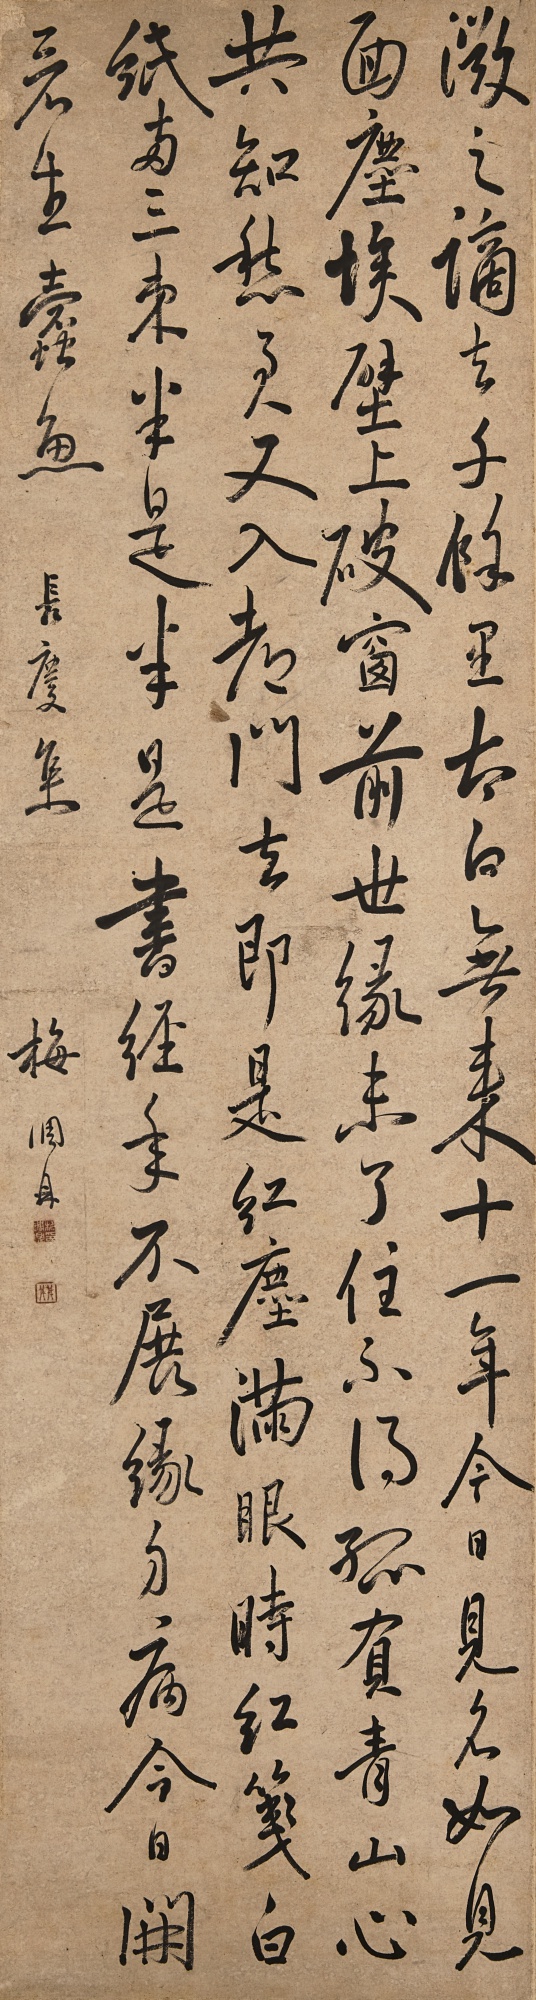 微之謫去千餘里太白無來十一年今日見名如見
面塵埃壁上破窗前世緣未了住不得孤負青山心
共知愁君又入都門去即是紅塵滿眼時紅箋白
紙兩三束半是半是書經年不展緣身病今日開
看生蠹魚 長慶集 梅調鼎